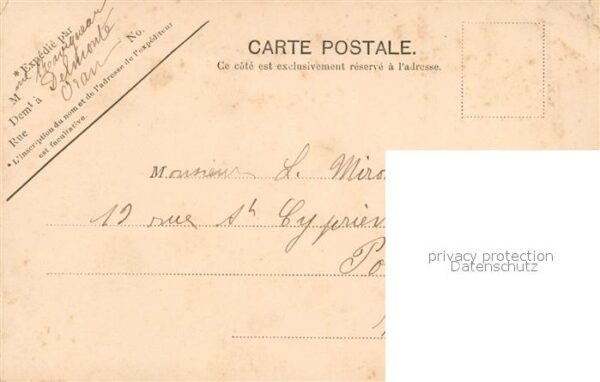 *Expédié par No.
M
Demt à Delmonte
Rue Oran
*L'inscription du nom et de l'adresse de l'expéditeur
est facultative.
CARTE POSTALE.
Ce côté est exclusivement réservé à l'adresse.
Monsieur L. Miro
19 rue St Cyprien
Po
privacy protection
Datenschutz